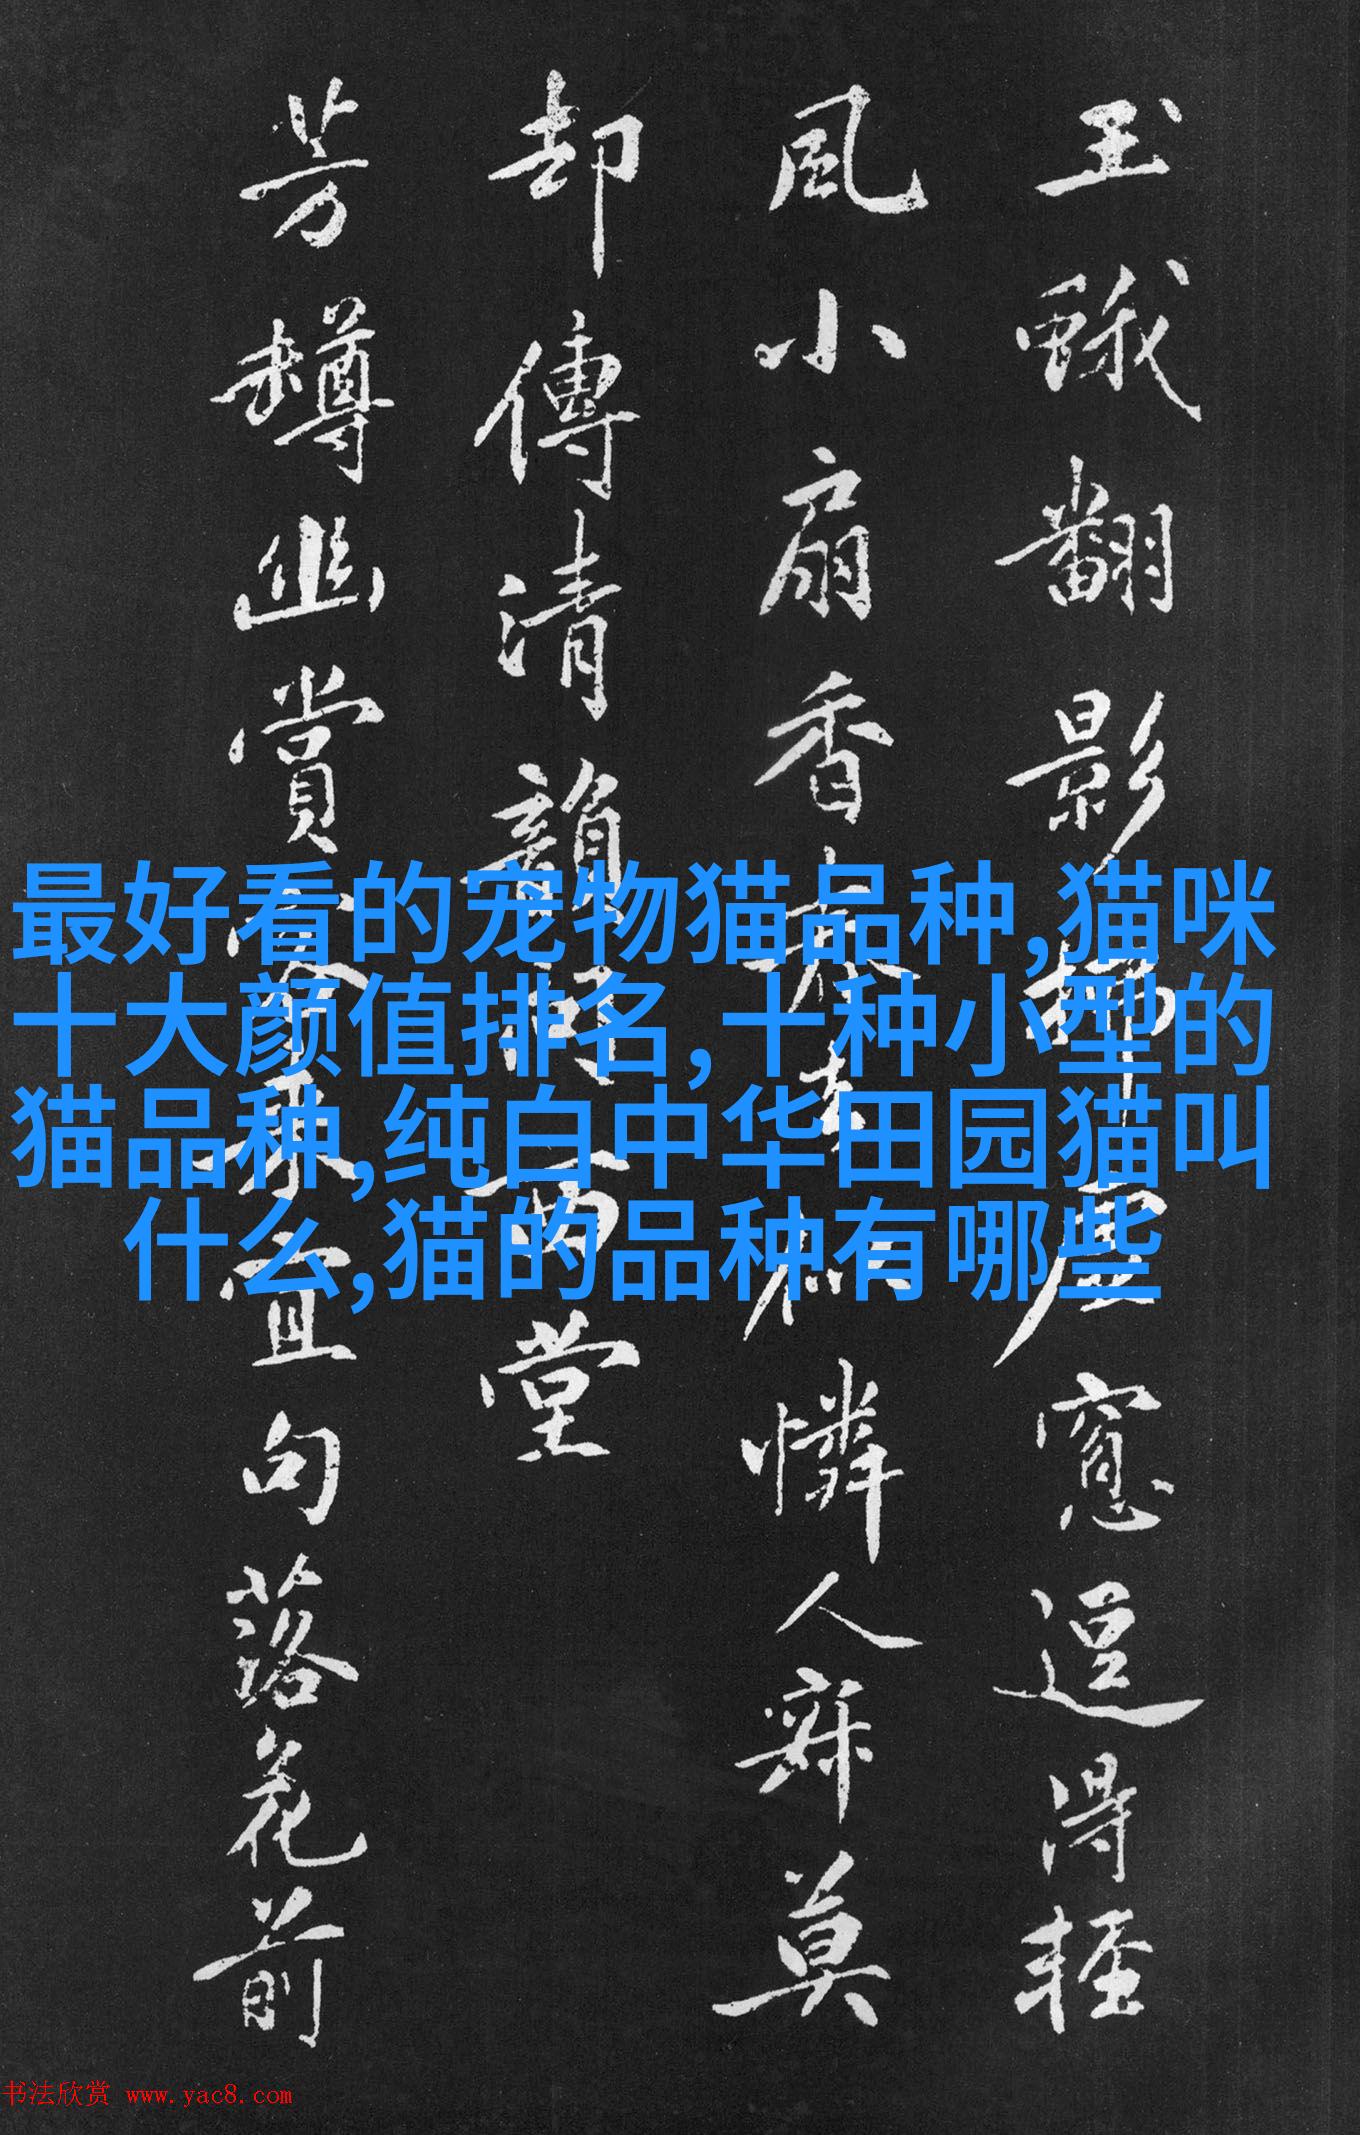 玉蛾翻影
虚窓逗得輕
風小扇香
憐人寐莫
却傳清韻
两堂
芳樽幽賞
宜句落花前
最好看的宠物猫品种,猫咪
十大颜值排名,十种小型的
猫品种,纯白中华田园猫叫
什么,猫的品种有哪些
书法欣赏 www.yac8.com